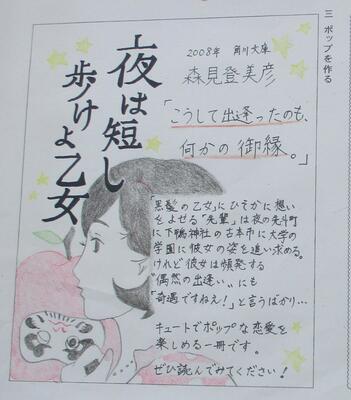 三 ポップを作る
夜は短し
歩けよ乙女
2008年 角川文庫
森見登美彦
「こうして出逢ったのも、
何かの御縁。」
「黒髪の乙女」にひそかに想い
をよせる「先輩」は夜の先斗町
に下鴨神社の古本市に大学の
学園に彼女の姿を追い求める。
けれど彼女は頻発する
"偶然の出逢い"にも
「奇遇ですねえ!」と言うばかり…
キュートでポップな恋愛を
楽しめる一冊です。
ぜひ読んでみてください!